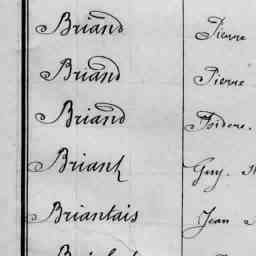 Briand Pierre
Briand Pierre
Briand Isidore.
Briant Guy.
Briantais Jean